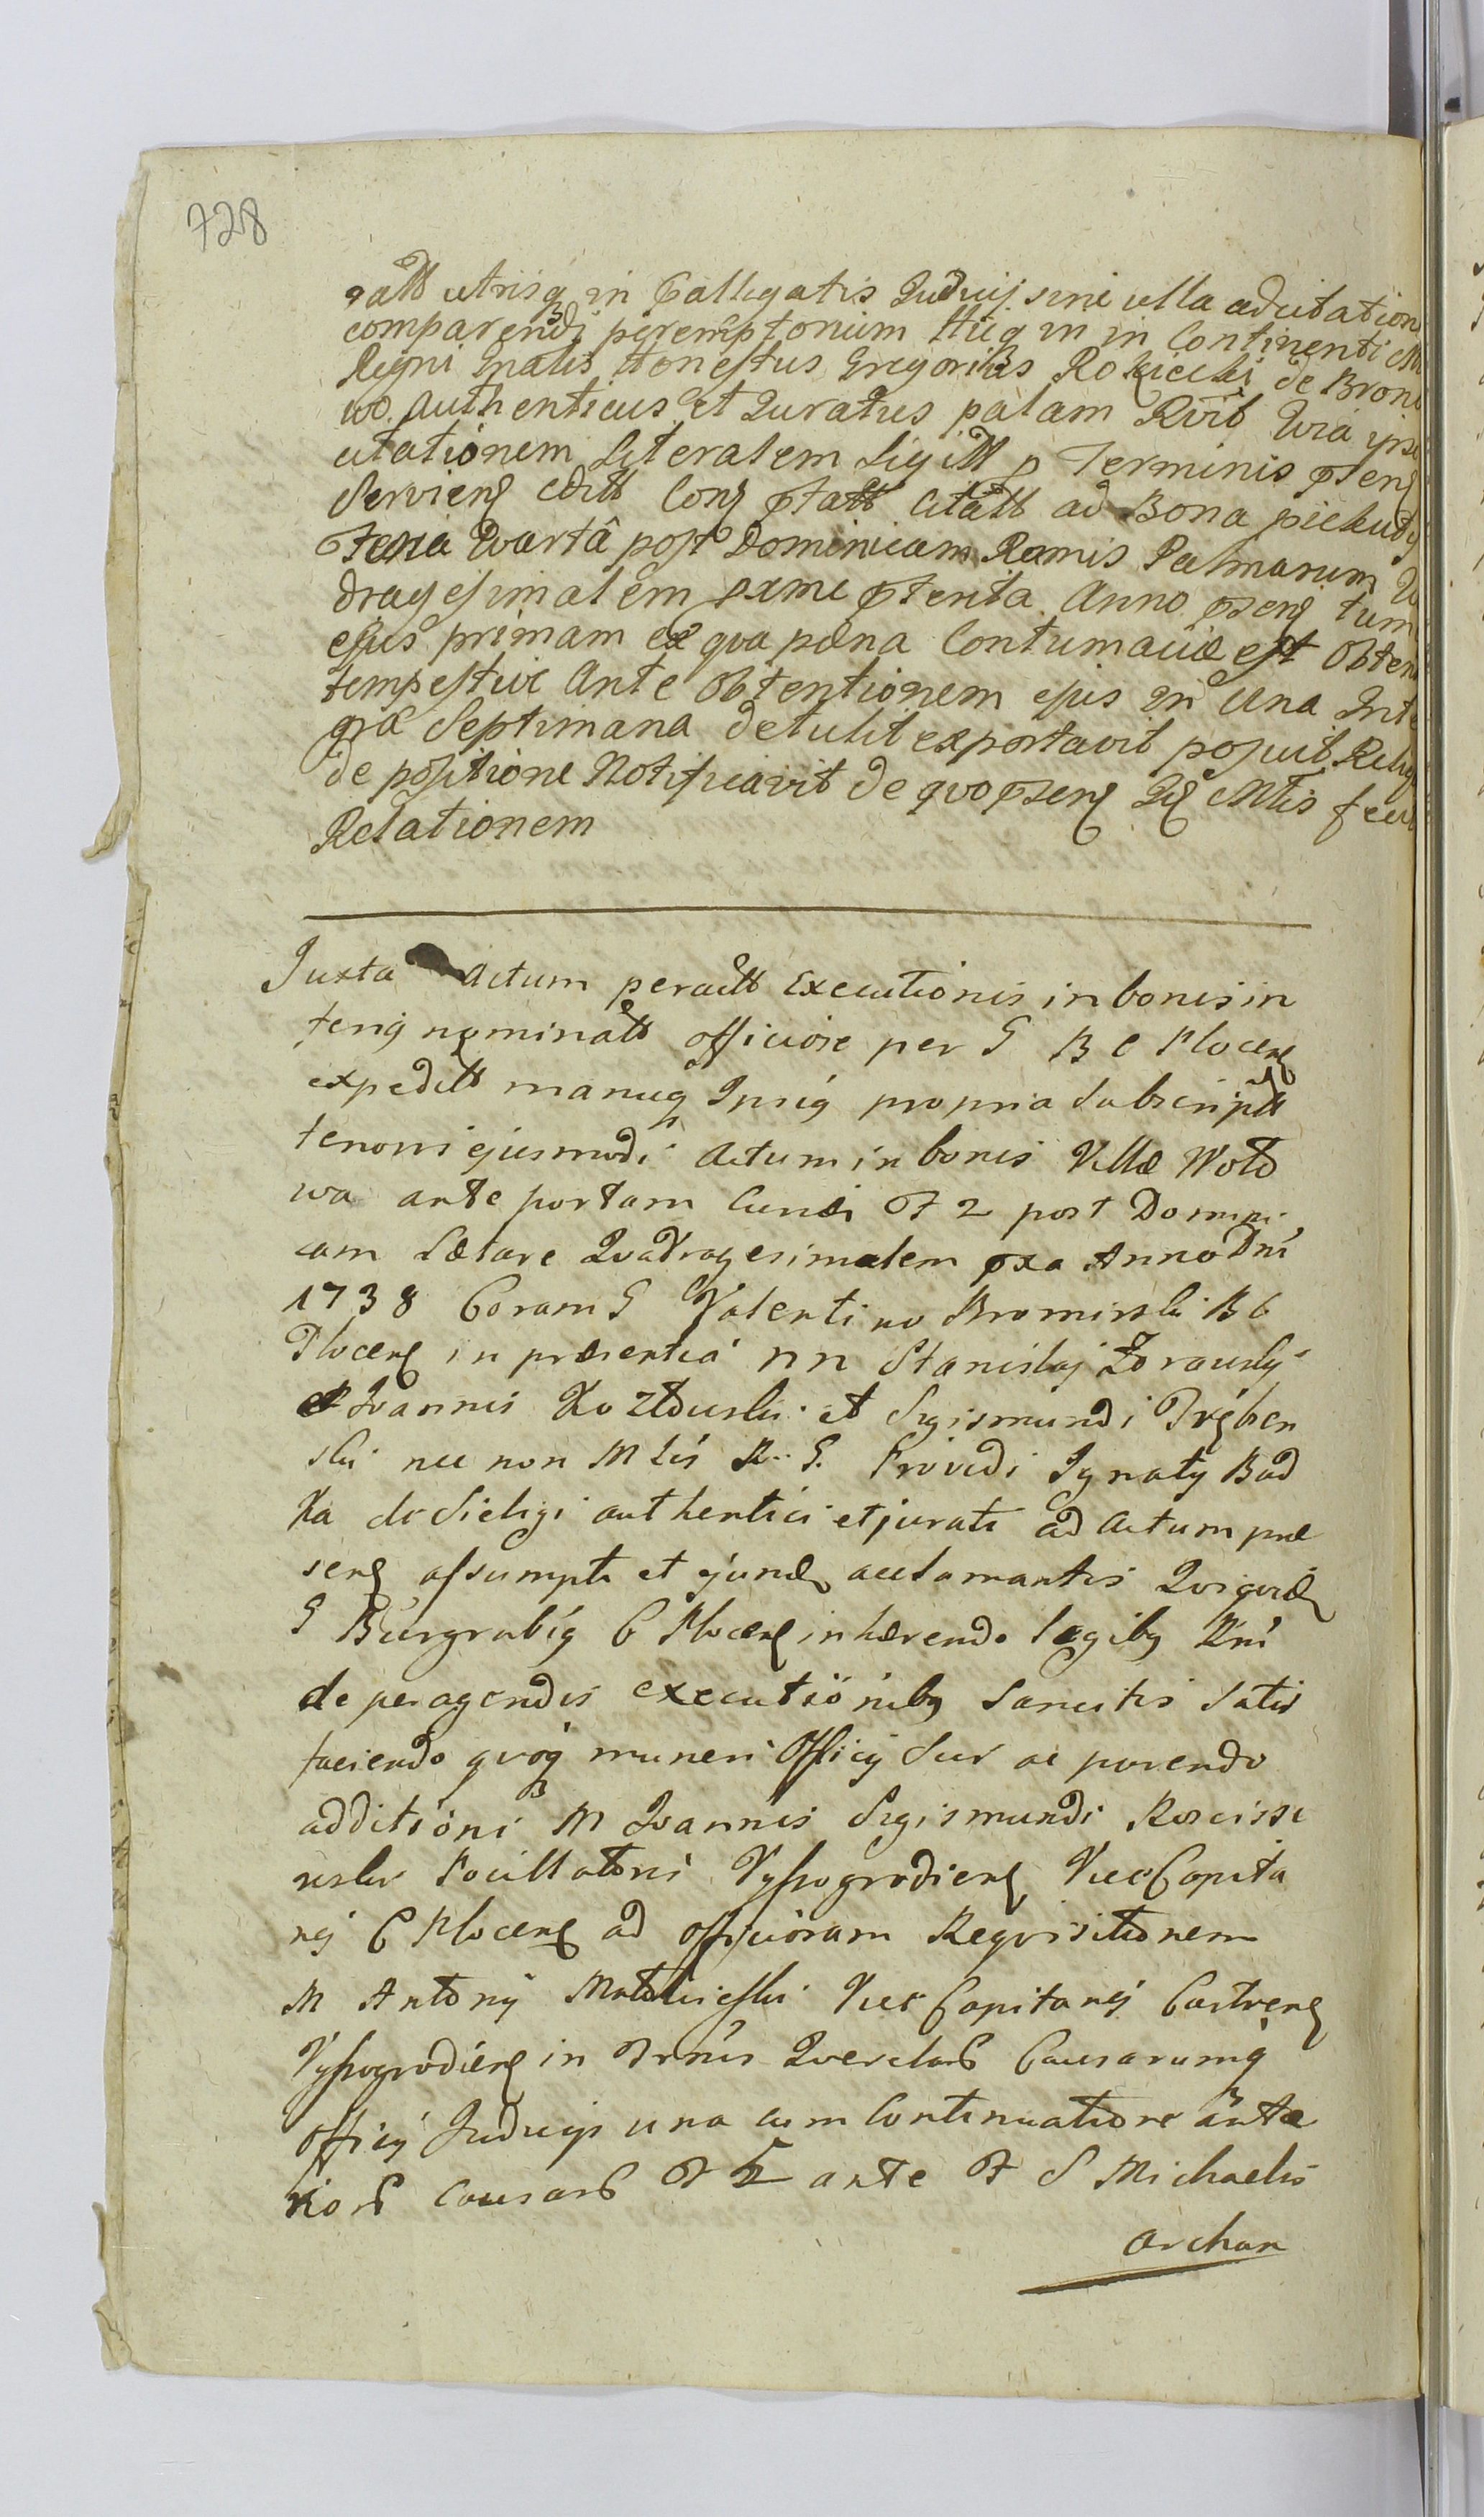 728
utrisq in Colligatis Judicijs sine ulla adcitatione
comparendi peremptorium Huic in in Continenti
Regni Gnalis Honestus Gregorius Rokicki de Brono
wo Authenticus et Juratus palam Rvit Qvia ipse
citationem Literalem Sigillt p Terminis pseng
Servieng edit Cong ptatt citatt ad Bona
Feria Qvarta post Dominicam Ramis Palmarum Qva
dragesimalem pxme pterita Anno pseng tum
ejus primam ex qva pæna Contumaciæ est obten
tempestive Ante obtentionem ejus in una Inte
gra Septimana detulit exportavit posuit
de positione Notificavit de qvo pseng fecit
Relationem
Juxta Actum peractt Executionis in bonis in
teriq nominatt officiose per G B C Plocenę
expeditt manuq Ipsiq propria Subscriptt
tenoris ejusmodi Actum in bonis Villæ Woło
wa ante portam Curiæ F 2 post Domini
cam Lætare Qvadragesimalem pxa Anno Dni
1738 Coram G Valentino Bromirski B C
Plocenę in præsentia nn Stanislaj Zorawskj
et Joannis Kozłowski et Sigismundi
ski nec non Mtis R. G. Providi Ignatij Bad
ka de Sieligi authentici et jurati ad Actum præ
senę assumpti et ejusdę acclamantis Qvi qvidę
G Burgrabiq C Plocenę inhærendo legibq Rni
de peragendis executionibq Sancitis Satis
faciendo qvoq muneri Officij Sui ac parendo
additioni M Joannis Sigismundi Kosciss
ewski Pocillatoris Vyssogrodienę ViceCapita
nej C Plocenę ad officiosam Reqvisitionem
M Antonij Vice Capitanej Castrenę
Vyssogrodienę in Trnis Qverelarę Causarumq
officij Judicijs una cum Continuatione antæ
riorę Causarę F 5 ante F S Michaelis
Archan